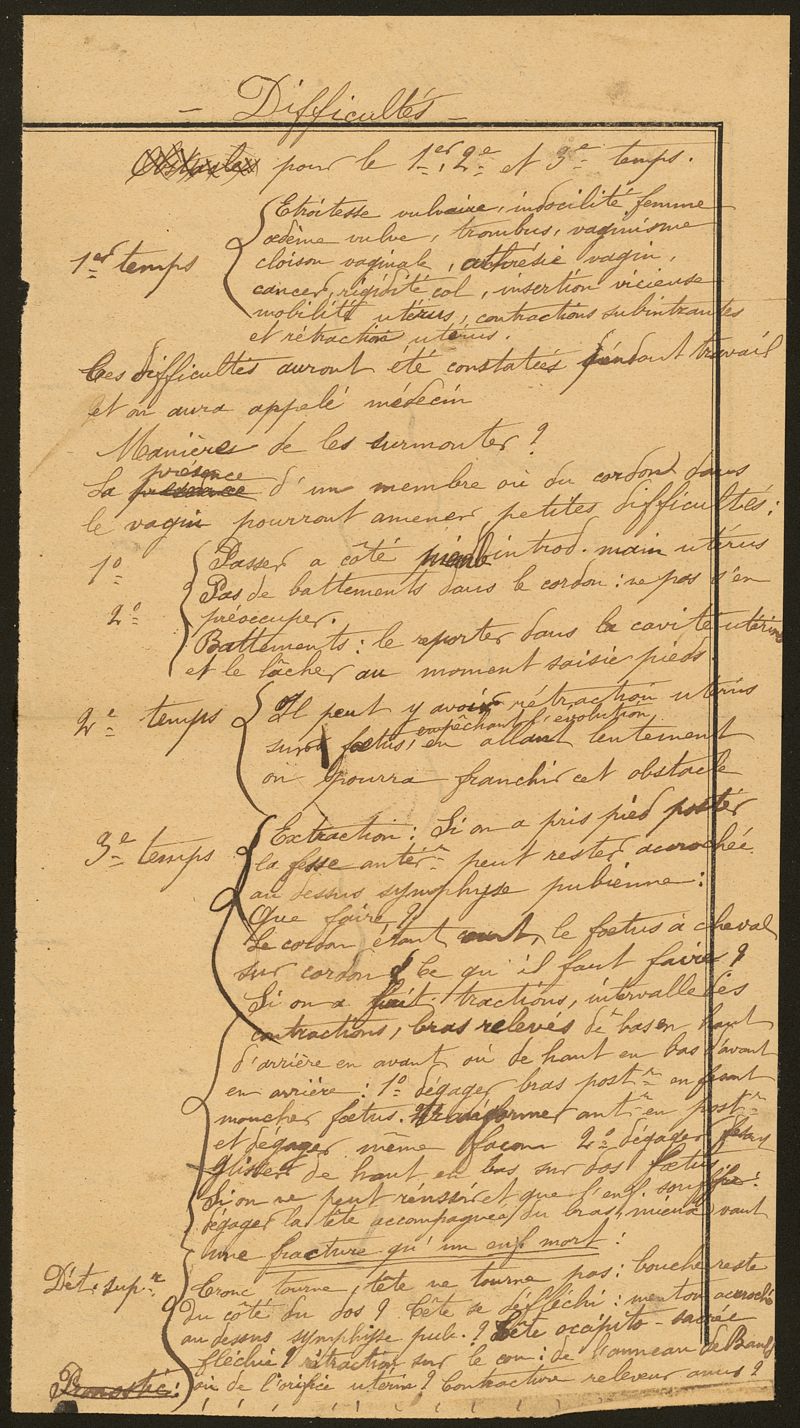 - Difficultés -
Obstacles pour le 1er, 2e et 3e temps.
Etroitesse vulvaire, indocilité femme
œdème vulve, trombus, vaginisme
1er temps cloison vaginale, athrésie vagin,
cancer, rigidité col, insertion vicieuse
mobilité utérus, contractions subintrantes
et rétraction utérus.
Ces difficultés auront été constatées pendant travail
et on aura appelé médecin
Manières de les surmonter ?
présence
La d'un membre ou du cordon dans
le vagin pourront amener petites difficultés :
1o Passer a côté introd. main utérus
Pas de battements dans le cordon : ne pas s'en
2o préoccuper.
Battements : le reporter dans la cavité utérine
et le lâcher au moment saisie pieds.
2e temps Il peut y avoir rétraction utérus
empêchant l'évolution
sur fœtus, en allant lentement
on pourra franchir cet obstacle
3e temps Extraction : Si on a pris pied postér
la fesse antérre peut rester accrochée
au dessus symphyse pubienne :
Que faire ?
Le cordon étant court, le fœtus à cheval
sur cordon ? Ce qu'il faut faire ?
Si on a fait tractions, intervalle des
contractions, bras relevés de bas en haut
d'arrière en avant ou de haut en bas d'avant
en arrière : 1o dégager bras postr en fesant
moucher fœtus. Transformer antr en postr
et dégager même façon 2o dégager fesan
glisser de haut en bas sur dos fœtus
Si on ne peut réussir et que l'enf. souffre :
dégager la tête accompagnée du bras, mieux vaut
une fracture qu'un enf mort !
Dét. supre Tronc tourne, tête ne tourne pas : bouche reste
du côté du dos ? Tête se défléchi : menton accroché
au dessus symphyse pub. ? Tête occipito-sacrée
fléchie ? rétraction sur le cou : de l'anneau de Bandl
Pronostic : ou de l'orifice utérin ? Contracture releveur anus ?